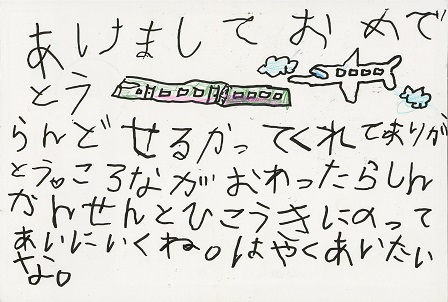 あけまして おめで
とう
らんどせるかってくれてありが
とう。ころながおわったらしん
かんせんとひこうきにのって
あいにいくね。はやくあいたい
な。